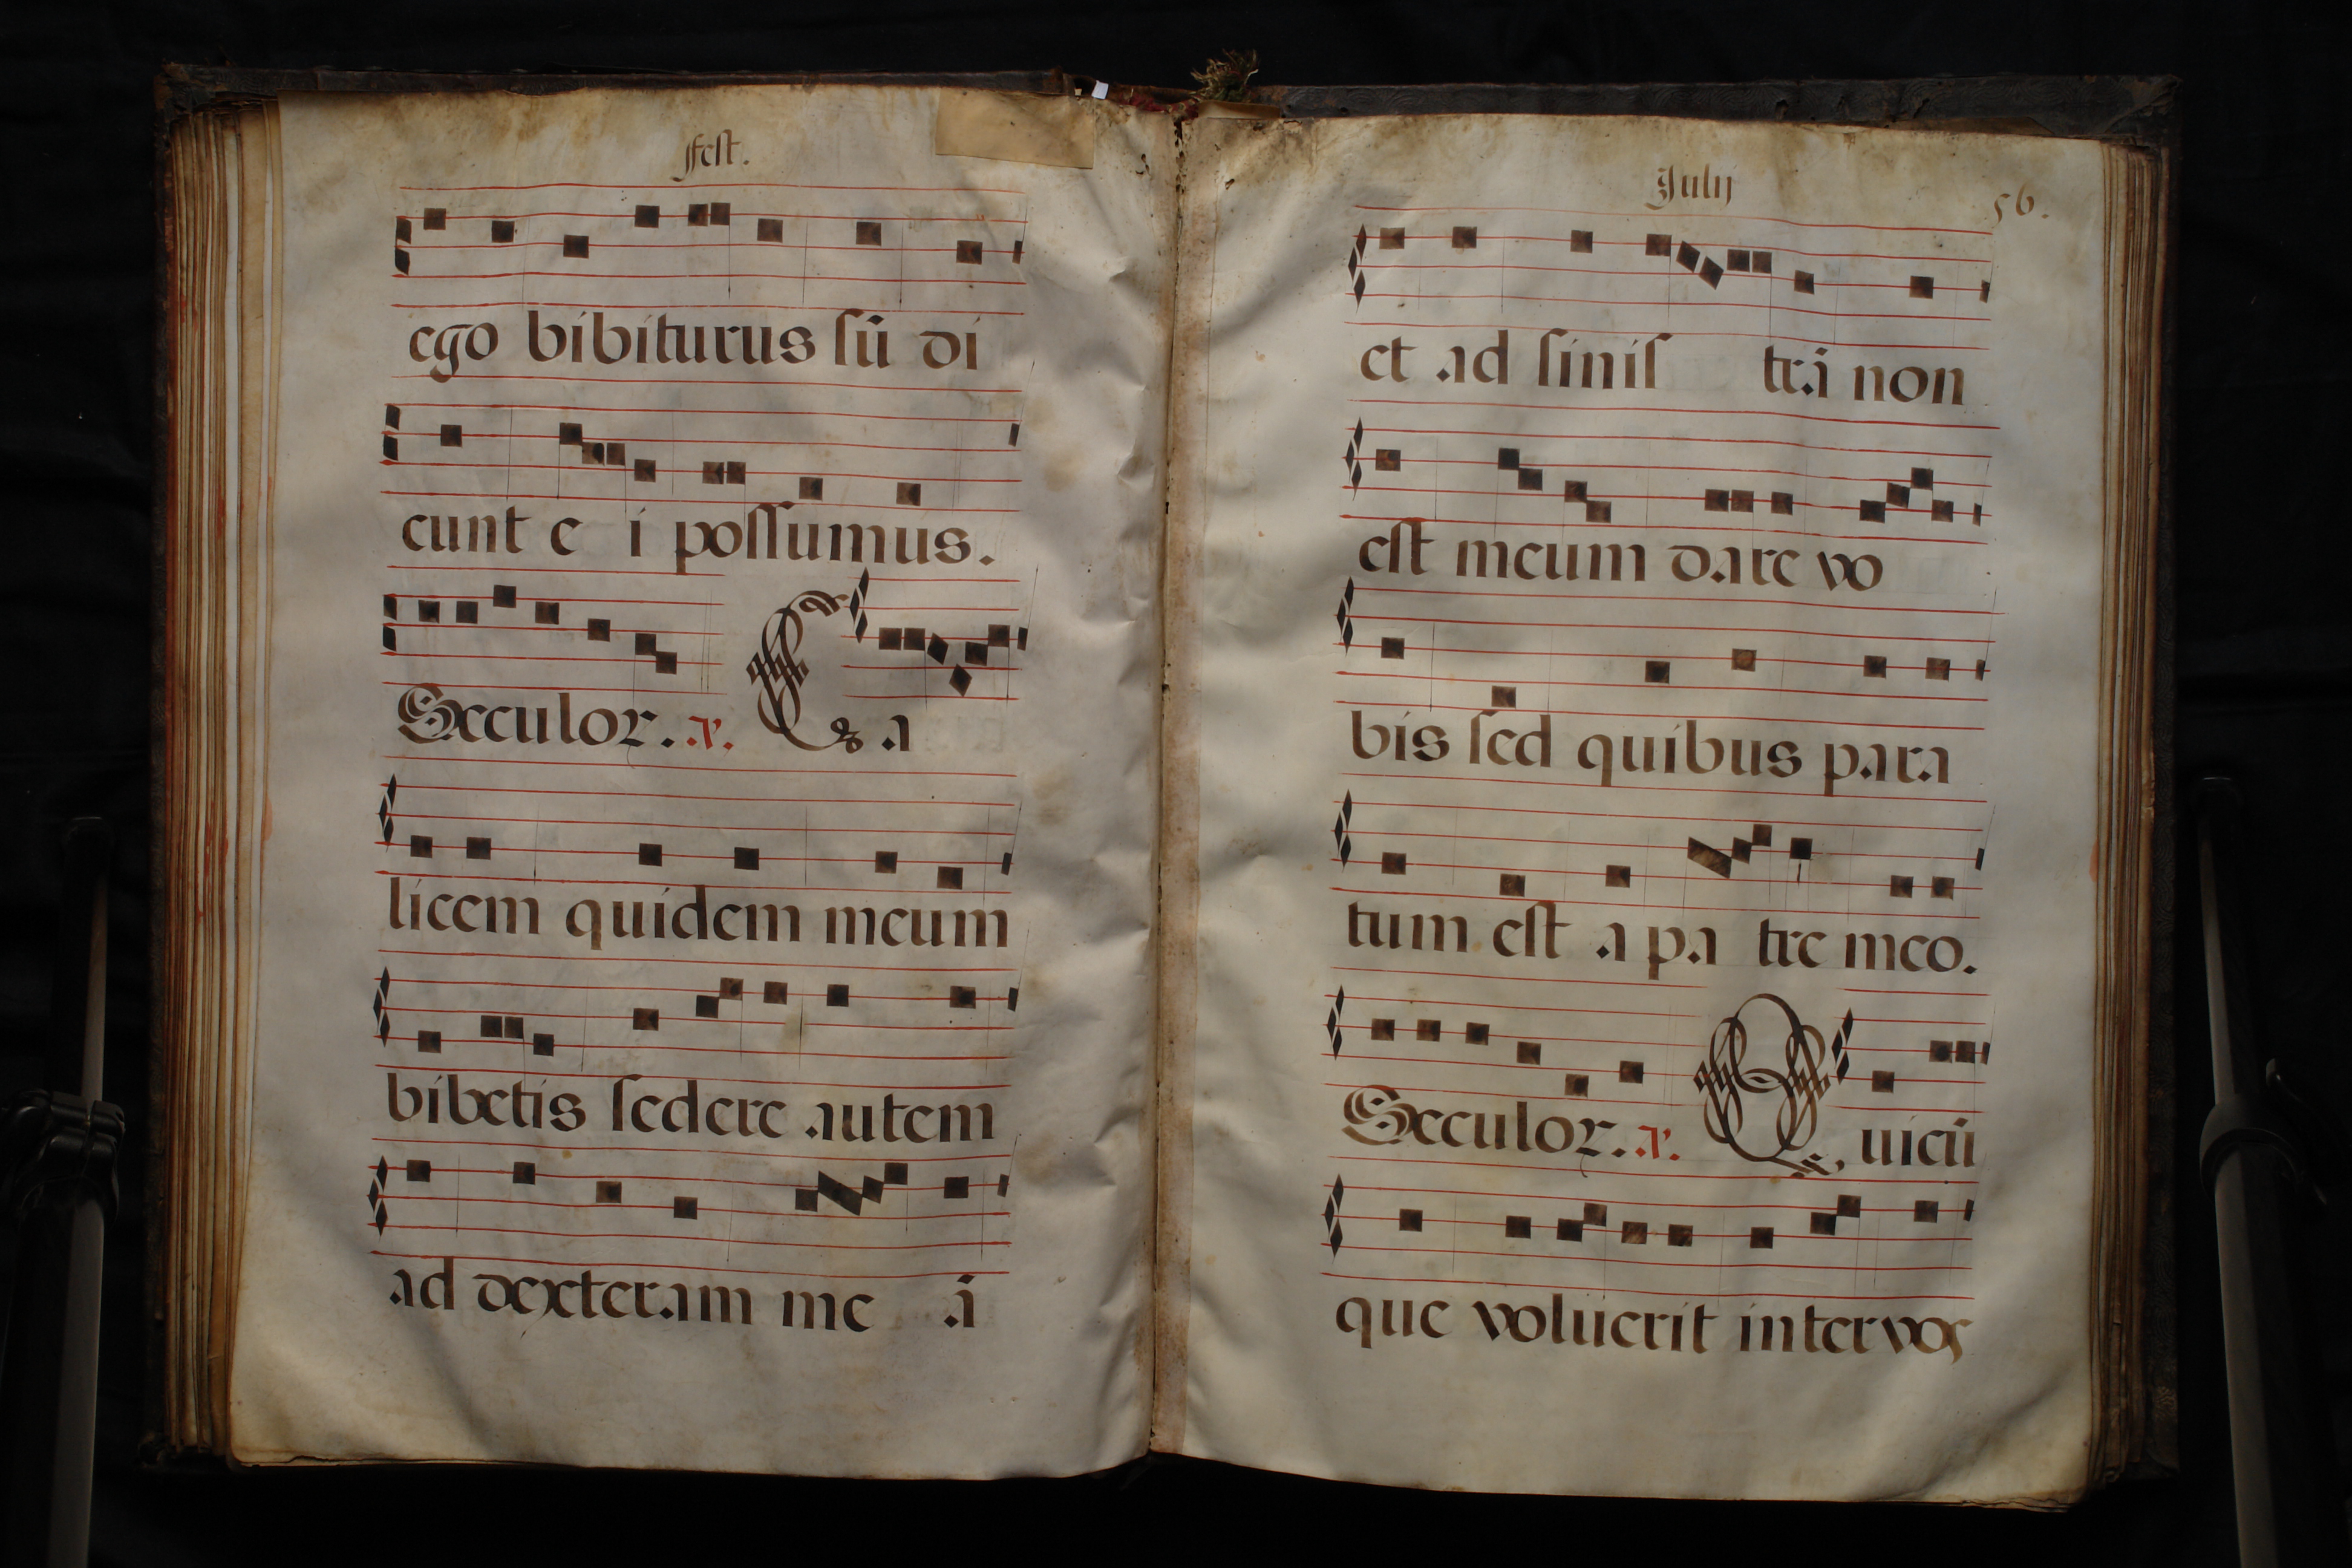 fest.
ego bibiturus sũ di
cunt e i possumus.
Seculor. a. Ca
licem quidem meum
bibetis sedere autem
ad dexteram me ã
July 56.
et ad sinis trã non
est meum dare vo
bis sed quibus para
tum est a pa tre meo.
Seculor. a. Quicũ
que voluerit inter vos